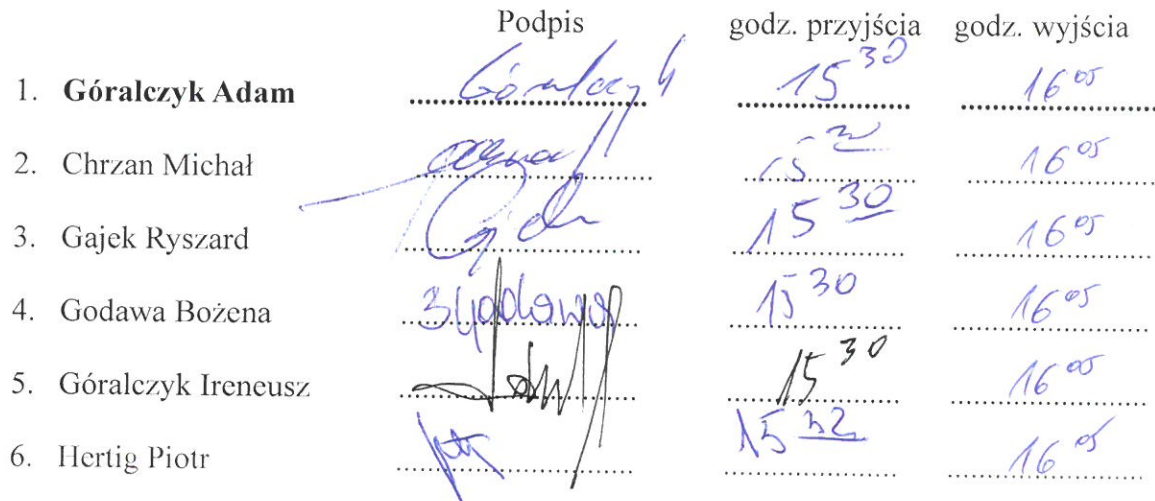 Podpis godz. przyjścia godz. wyjścia
1. Góralczyk Adam Góralczyk 15 30 16 05
2. Chrzan Michał 15 16 05
3. Gajek Ryszard 15 30 16 05
4. Godawa Bożena BGodawa 15 30 16 05
5. Góralczyk Ireneusz 15 30 16 05
6. Hertig Piotr 15 32 16 05